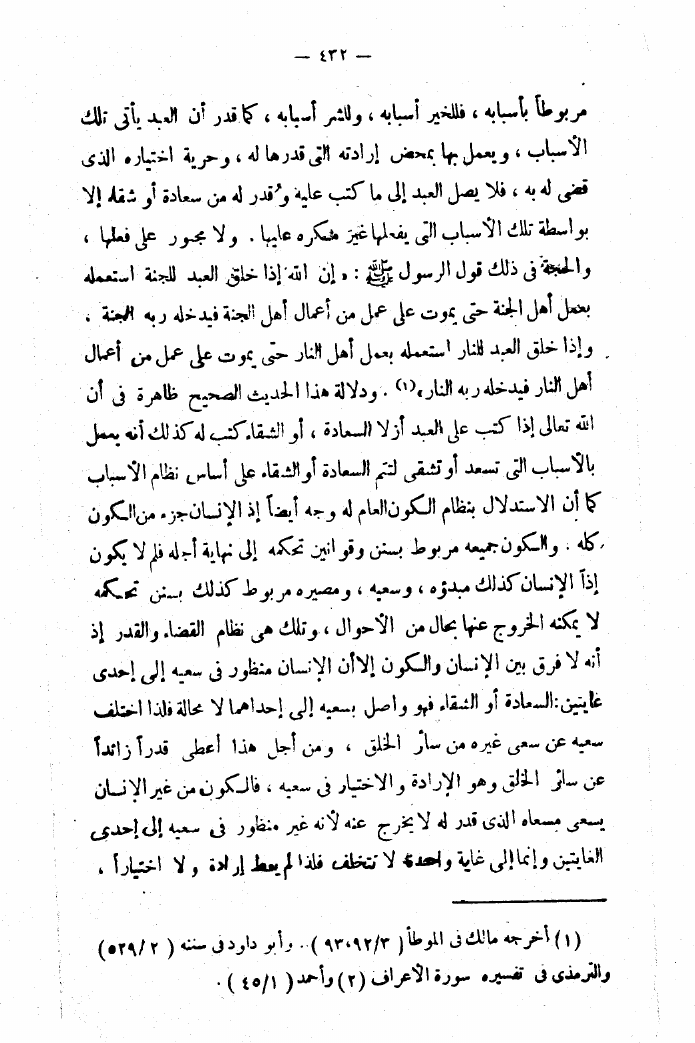 — ٤٣٢ —
مربوطاً بأسبابه ، فللخير أسبابه ، وللشر أسبابه ، كما قدر أن العبد يأتى تلك
الأسباب ، ويعمل بها بمحض إرادته التى قدرها له ، وحرية اختياره الذى
قضى له به ، فلا يصل العبد إلى ما كتب عليه وقدر له من سعادة أو شقاء إلا
بواسطة تلك الأسباب التى يفعلها غير مكره عليها . ولا مجبور على فعلها ،
والحجة فى ذلك قول الرسول ﷺ : « إن الله إذا خلق العبد للجنة استعمله
بعمل أهل الجنة حتى يموت على عمل من أعمال أهل الجنة فيدخله ربه الجنة ،
وإذا خلق العبد للنار استعمله بعمل أهل النار حتى يموت على عمل من أعمال
أهل النار فيدخله ربه النار »(١) . ودلالة هذا الحديث الصحيح ظاهرة فى أن
الله تعالى إذا كتب على العبد أزلا السعادة ، أو الشقاء كتب له كذلك أنه يعمل
بالأسباب التى تسعد أو تشقى لتتم السعادة أو الشقاء على أساس نظام الأسباب
كما أن الاستدلال بنظام الكون العام له وجه أيضاً إذ الإنسان جزء من الكون
كله . والكون جميعه مربوط بسنن وقوانين تحكمه إلى نهاية أجله فلم لا يكون
إذاً الإنسان كذلك مبدؤه ، وسعيه ، ومصيره مربوط كذلك بسنن تحكمه
لا يمكنه الخروج عنها بحال من الأحوال ، وتلك هى نظام القضاء والقدر إذ
أنه لا فرق بين الإنسان والكون إلا أن الإنسان منظور فى سعيه إلى إحدى
غايتين : السعادة أو الشقاء فهو واصل بسعيه إلى إحداهما لا محالة فلذا اختلف
سعيه عن سعى غيره من سائر الخلق ، ومن أجل هذا أعطى قدراً زائداً
عن سائر الخلق وهو الإرادة والاختيار فى سعيه ، فالكون من غير الإنسان
يسعى مسعاه الذى قدر له لا يخرج عنه لأنه غير منظور فى سعيه إلى إحدى
الغايتين وإنما إلى غاية واحدة لا تتخلف فلذا لم يعط إرادة ولا اختياراً ،
(١) أخرجه مالك فى الموطأ ( ٣/ ٩٢، ٩٣ ) . وأبو داود فى سننه ( ٢/ ٥٢٩ )
والترمذى فى تفسيره سورة الأعراف (٢) وأحمد ( ١/ ٤٥ ) .